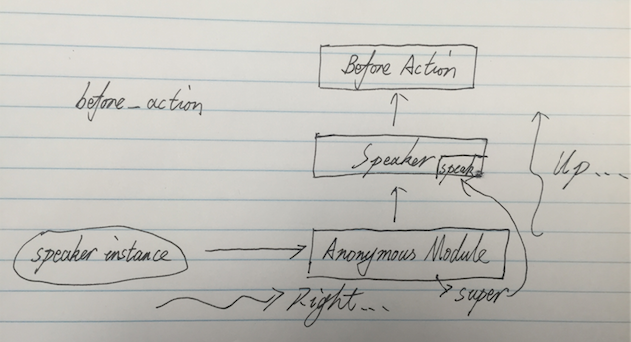 Before Action
before_action
Speaker
speak
Up...
speaker instance
Anonymous Module
Right...
super